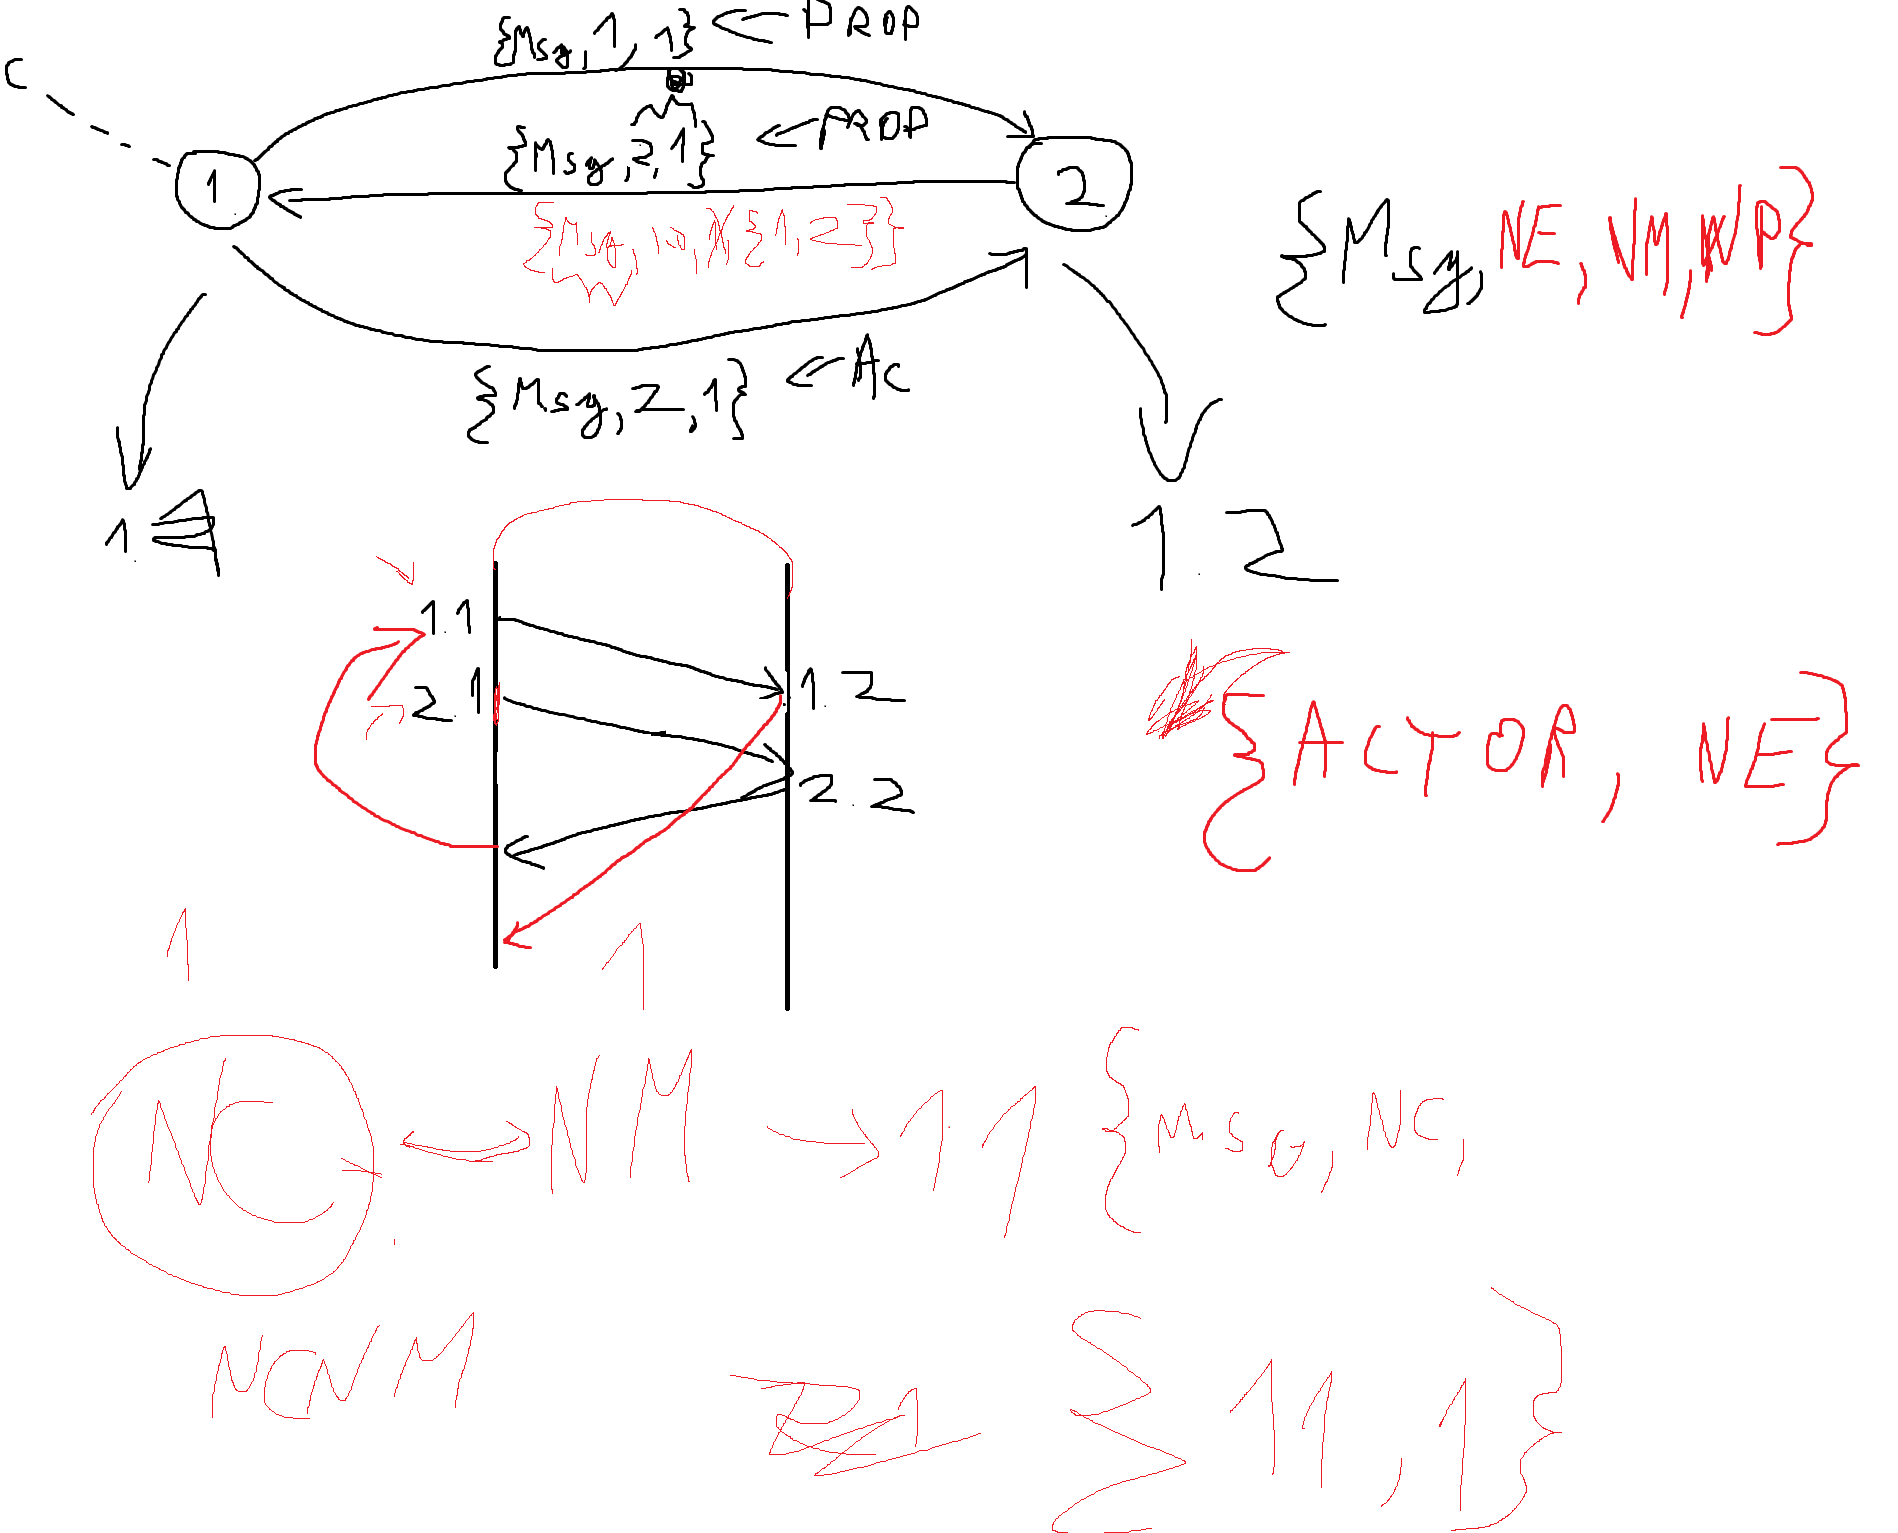 {Msg, 1, 1} <- PROP
C
{Msg, 2, 1} <- PROP
1
2
{Msg, NE, NM, NP}
{1, 2}}
{Msg, 2, 1} <- AC
1.
1.2
1.1
2.1
1.2
2.2
{ACTOR, NE}
1
1
NC <-> NM -> 11 {MSG, NC,
NCNM
{11, 1}